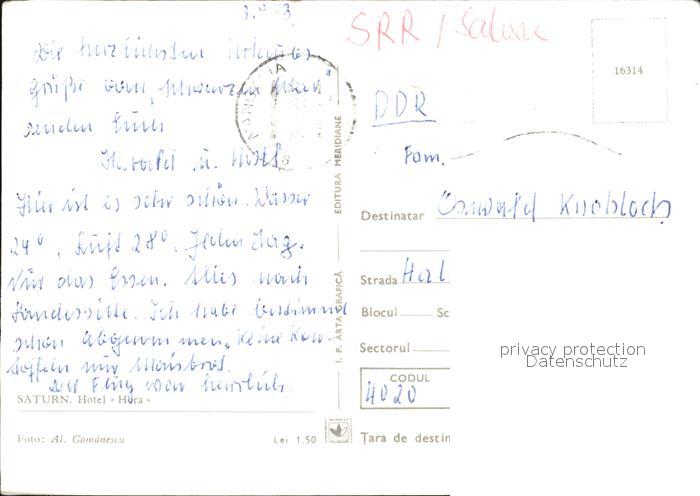 SRR / Saturn
16314
Die herzlichsten Urlaubs
grüße vom "Schwarzen Meer"
senden Euch
Hier ist es sehr schön. Wasser
24°, Luft 28°. Jeden Tag.
Nur das Essen. Alles nach
Landessitte. Ich habe bestimmt
schon abgenommen. Keine Kar-
toffeln nur Maisbrot.
Der Flug war herrlich.
SATURN. Hotel «Hora»
Foto: Al. Comănescu
Lei 1.50
I. P. ARTA GRAFICĂ
EDITURA MERIDIANE
DDR
Fam.
Destinatar Oswald Knobloch
Strada Hal
Blocul Sc
Sectorul
CODUL
4020
Țara de destin
privacy protection
Datenschutz